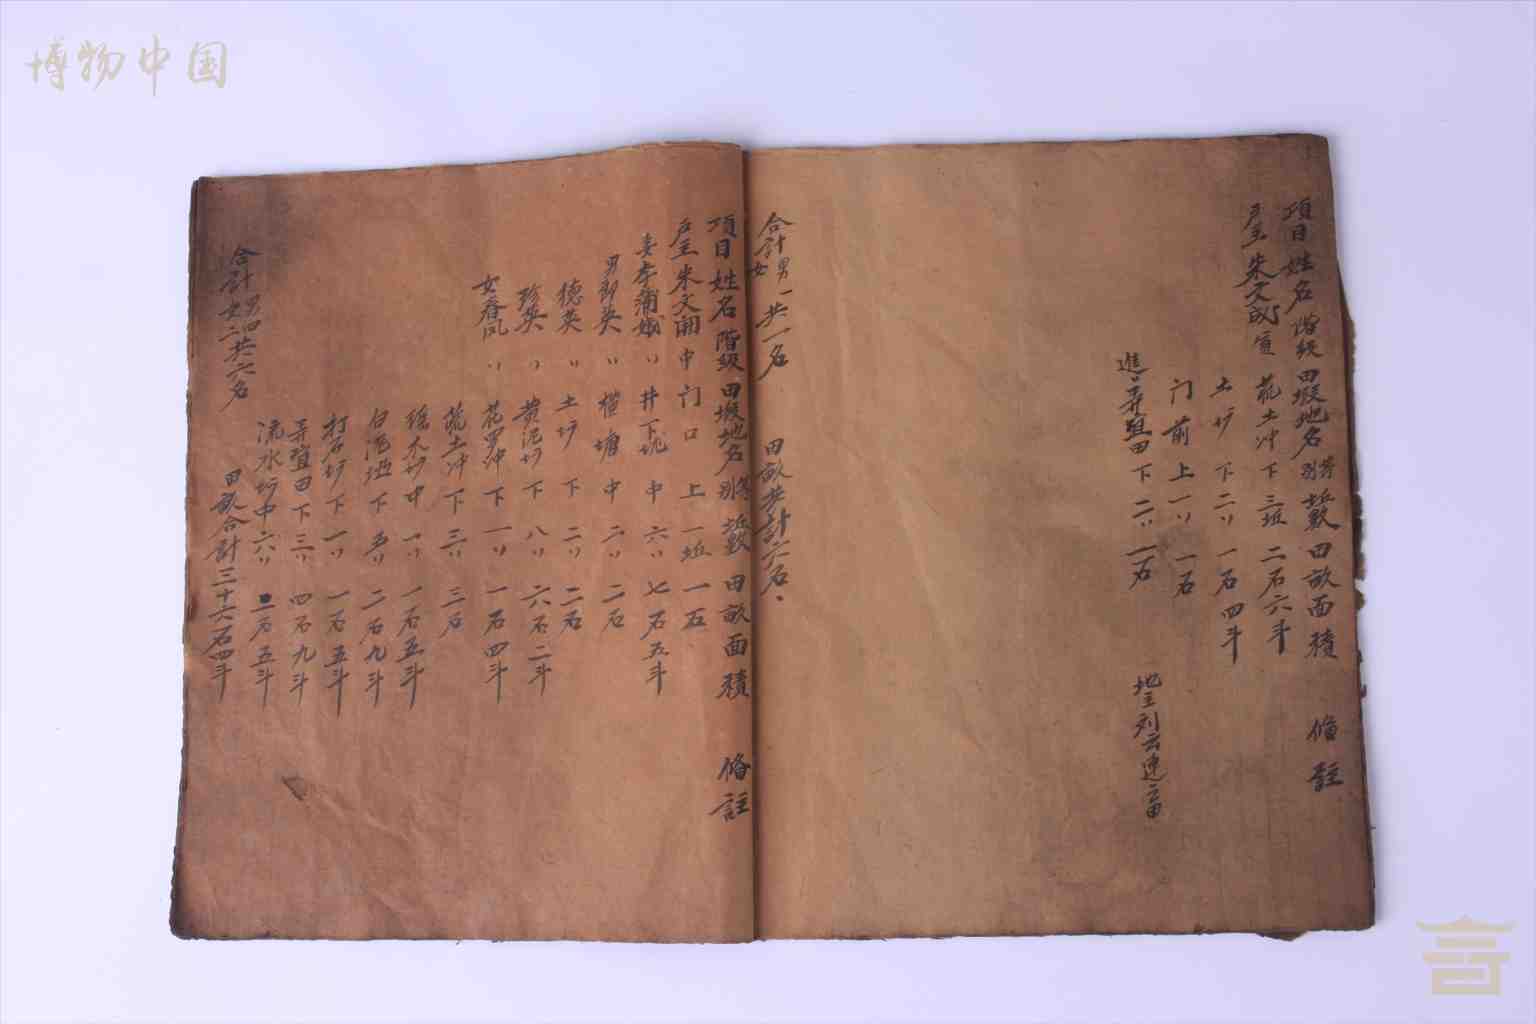 博物中国
項目 姓名 階級 田塅地名 等別 坵數 田畝面積 備註
户主 朱文成 貧 茏土冲 下 三坵 二石六斗
土圹 下 二〃 一石四斗
门前 上 一〃 一石
進〃弄壟田 下 二〃 一石 地主刘云連畨
合計 男一 女 共一名 田畝共計六石、
項目 姓名 階級 田塅地名 等別 坵數 田畝面積 俻註
户主 朱文開 中 门口 上 一坵 一石
妻李蒲娥 〃 井下垅 中 六〃 七石五斗
男郎英 〃 檔塘 中 二〃 二石
德英 〃 土圹 下 二〃 二石
珍英 〃 黄泥圹 下 八〃 六石二斗
女春凤 〃 花罗冲 下 一〃 一石四斗
茏土冲 下 三〃 三石
木圹 中 一〃 一石五斗
白泥 下 五〃 二石九斗
打石圹 下 一〃 一石五斗
弄壟田 下 三〃 四石九斗
流水圹 中 六〃 二石五斗
合計 男四 女二 共六名 田畝合計三十六石四斗